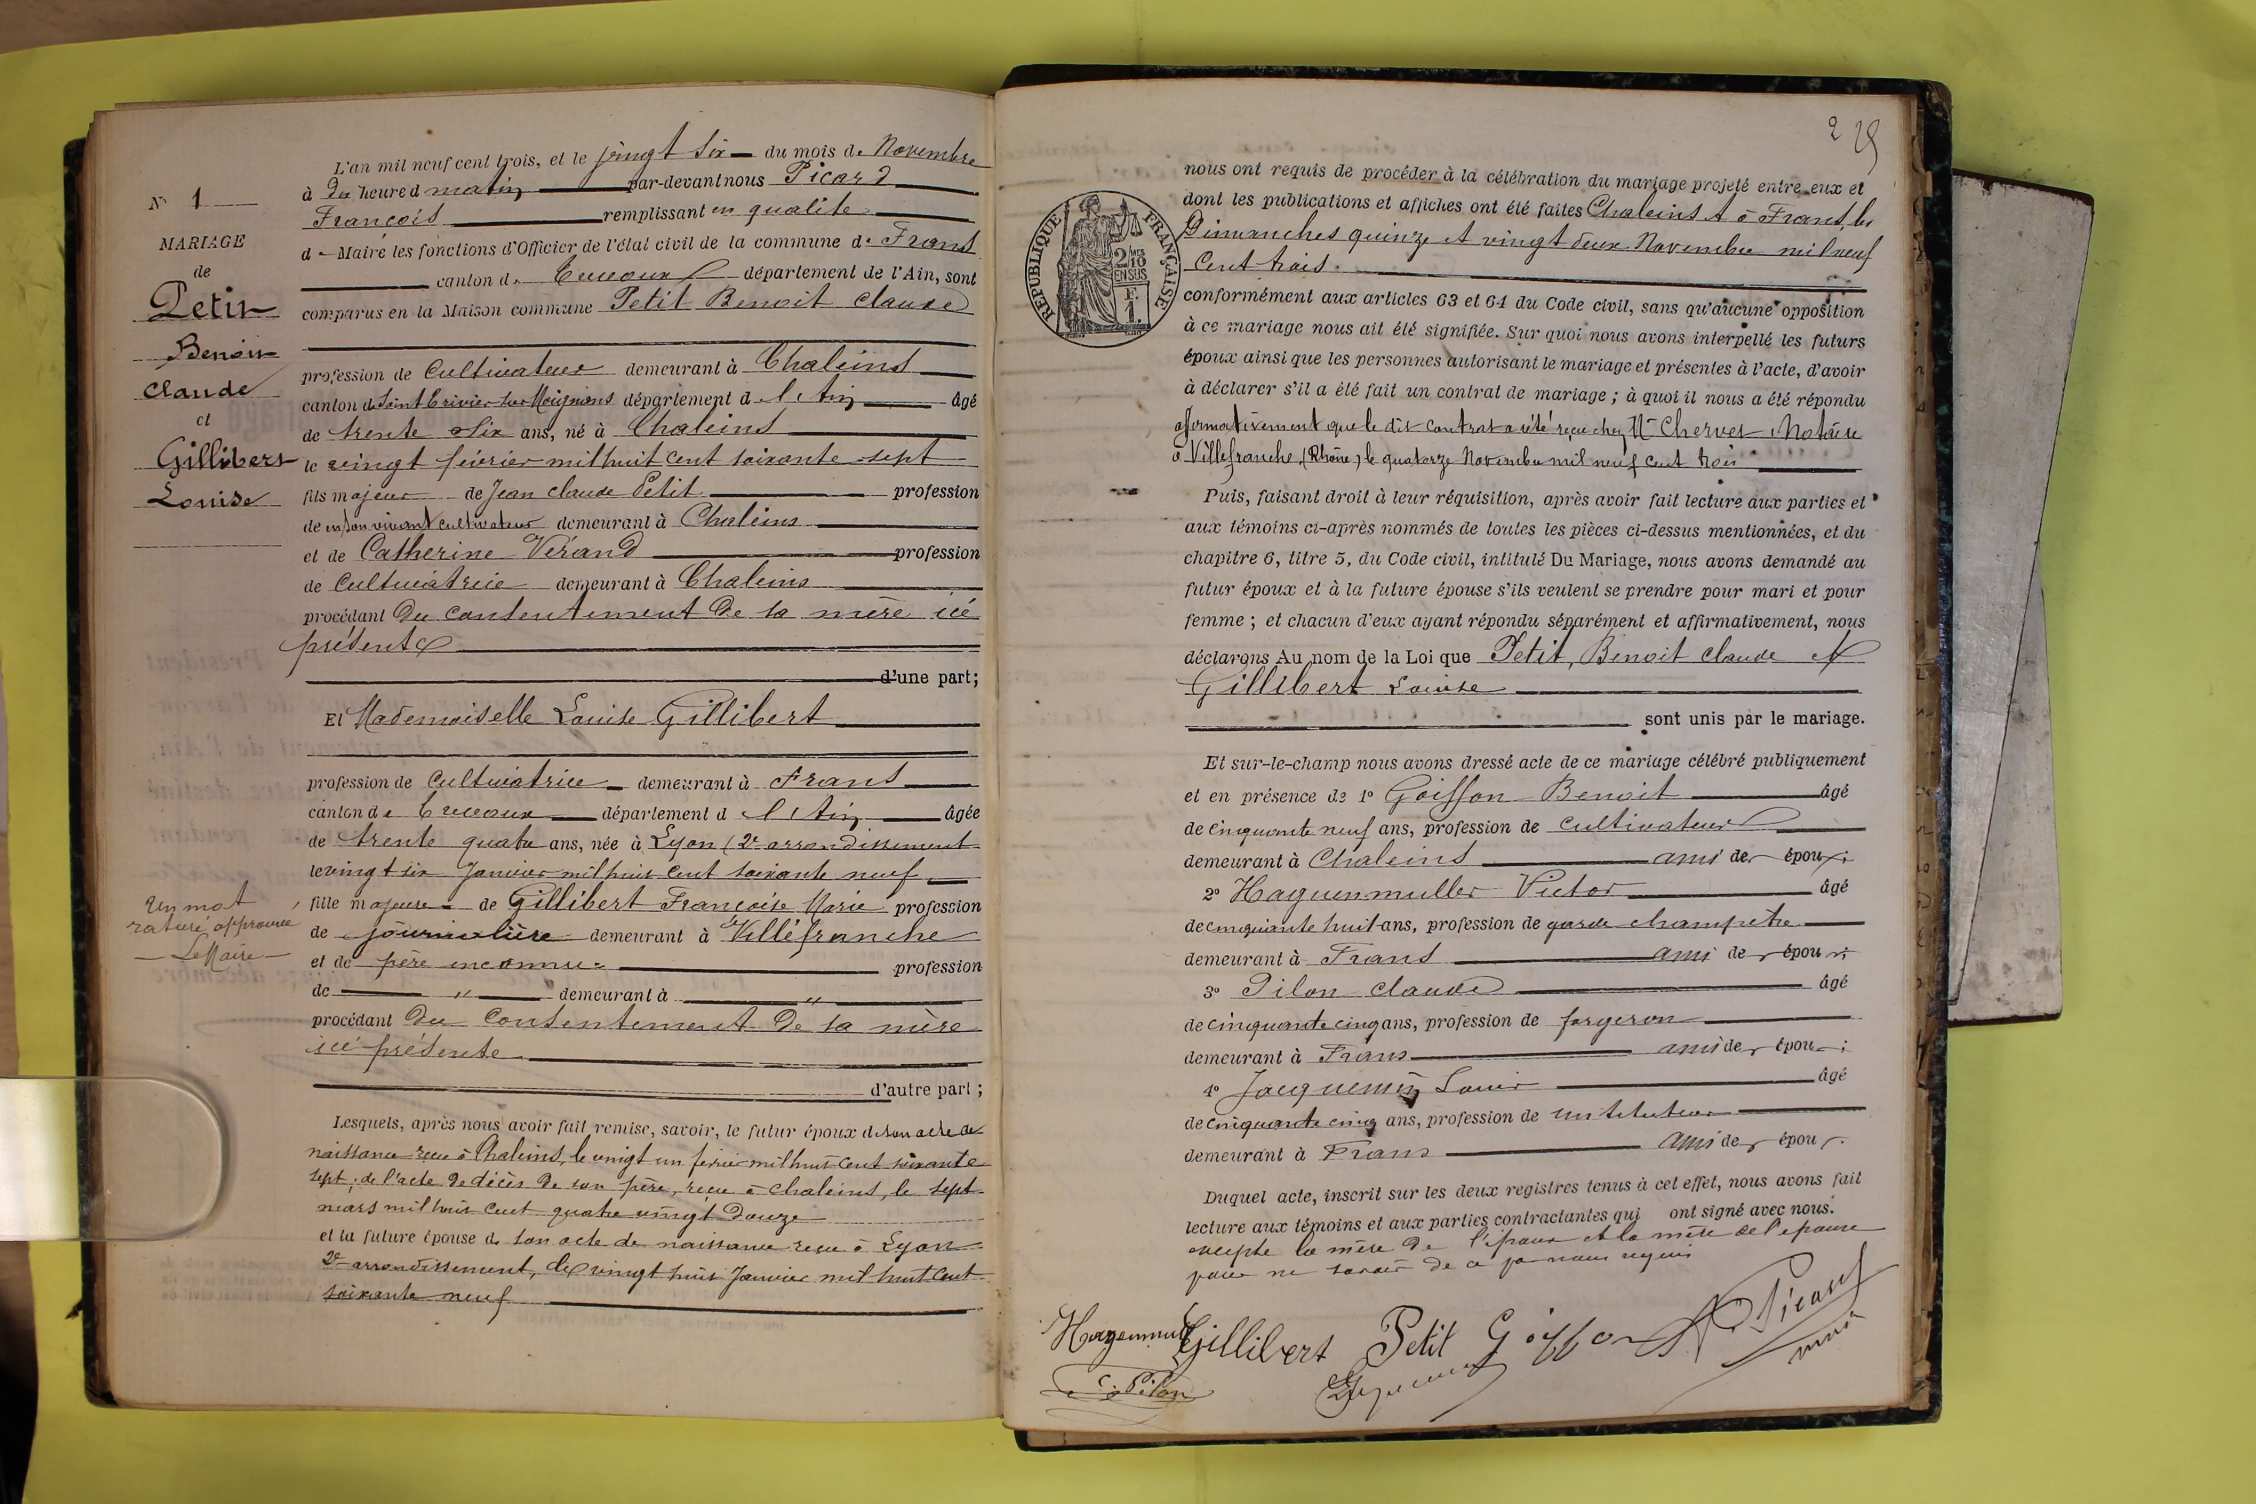 N° 1
MARIAGE
de
Petit
Benoit
Claude
et
Gillibert
Louise
Un mot
raturé approuvé
Le Maire
L'an mil neuf cent trois, et le vingt six du mois de Novembre
à dix heure d matin par-devant nous Picard
François remplissant en qualité
de Maire les fonctions d'Officier de l'état civil de la commune de Frans
canton de Trévoux département de l'Ain, sont
comparus en la Maison commune Petit Benoit Claude
profession de Cultivateur demeurant à Chaleins
canton de Saint Trivier sur Moignans département d l'Ain âgé
de trente six ans, né à Chaleins
le vingt février mil huit cent soixante sept
fils majeur de Jean Claude Petit profession
de en son vivant cultivateur demeurant à Chaleins
et de Catherine Vérand profession
de Cultivatrice demeurant à Chaleins
procédant du consentement de sa mère ici
présente
d'une part;
Et Mademoiselle Louise Gillibert
profession de Cultivatrice demeurant à Frans
canton de Trévoux département d l'Ain âgée
de trente quatre ans, née à Lyon (2e arrondissement
le vingt six Janvier mil huit cent soixante neuf
fille majeure de Gillibert Françoise Marie profession
de journalière demeurant à Villefranche
et de père inconnu profession
de " demeurant à "
procédant du consentement de sa mère
ici présente
d'autre part;
Lesquels, après nous avoir fait remise, savoir, le futur époux de son acte de
naissance reçu à Chaleins, le vingt un février mil huit cent soixante
sept; de l'acte de décès de son père, reçu à Chaleins, le sept
mars mil huit cent quatre vingt douze
et la future épouse de son acte de naissance reçu à Lyon
2e arrondissement, le vingt huit Janvier mil huit cent
soixante neuf
2
29
RÉPUBLIQUE FRANÇAISE
2/10 EN SUS
F. 1.
nous ont requis de procéder à la célébration du mariage projeté entre eux et
dont les publications et affiches ont été faites Chaleins et à Frans, les
Dimanches quinze et vingt deux Novembre mil neuf
cent trois.
conformément aux articles 63 et 64 du Code civil, sans qu'aucune opposition
à ce mariage nous ait été signifiée. Sur quoi nous avons interpellé les futurs
époux ainsi que les personnes autorisant le mariage et présentes à l'acte, d'avoir
à déclarer s'il a été fait un contrat de mariage ; à quoi il nous a été répondu
affirmativement que le dit contrat a été reçu chez Me Cherves Notaire
à Villefranche, (Rhône) le quatorze Novembre mil neuf cent trois
Puis, faisant droit à leur réquisition, après avoir fait lecture aux parties et
aux témoins ci-après nommés de toutes les pièces ci-dessus mentionnées, et du
chapitre 6, titre 5, du Code civil, intitulé Du Mariage, nous avons demandé au
futur époux et à la future épouse s'ils veulent se prendre pour mari et pour
femme ; et chacun d'eux ayant répondu séparément et affirmativement, nous
déclarons Au nom de la Loi que Petit, Benoit Claude et
Gillibert Louise
sont unis par le mariage.
Et sur-le-champ nous avons dressé acte de ce mariage célébré publiquement
et en présence de 1° Goiffon Benoit âgé
de cinquante neuf ans, profession de cultivateur
demeurant à Chaleins ami de époux;
2° Haguenmuller Victor âgé
de cinquante huit ans, profession de garde champêtre
demeurant à Frans ami de épou;
3° Pilon Claude âgé
de cinquante cinq ans, profession de forgeron
demeurant à Frans ami de épou;
4° Jacquemin Louis âgé
de cinquante cinq ans, profession de instituteur
demeurant à Frans ami de épou.
Duquel acte, inscrit sur les deux registres tenus à cet effet, nous avons fait
lecture aux témoins et aux parties contractantes qui ont signé avec nous.
excepté la mère de l'époux et la mère de l'épouse
pour ne savoir de ce par nous requis
Gillibert Petit Goiffon Picard
C. Pilon